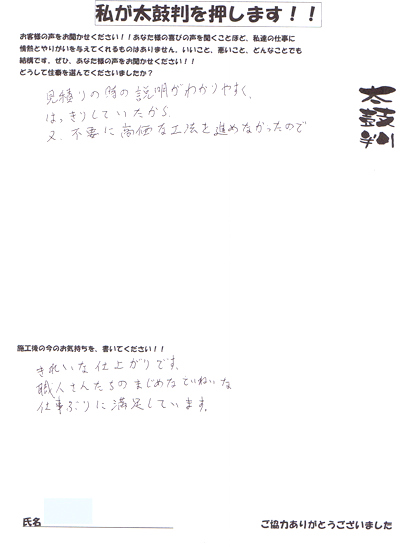 私が太鼓判を押します！！
お客様の声をお聞かせください！！あなた様の喜びの声を聞くことほど、私達の仕事に
情熱とやりがいを与えてくれるものはありません。いいこと、悪いこと、どんなことでも
結構です。ぜひ、あなた様の声をお聞かせください！！
どうして仕事を選んでくださいましたか？
見積りの時の説明がわかりやすく、
はっきりしていたから
又、不要に高価な工法を進めなかったので
太鼓判
施工後の今のお気持ちを、書いてください！！
きれいな仕上がりです。
職人さんたちのまじめなていねいな
仕事ぶりに満足しています。
氏名
ご協力ありがとうございました